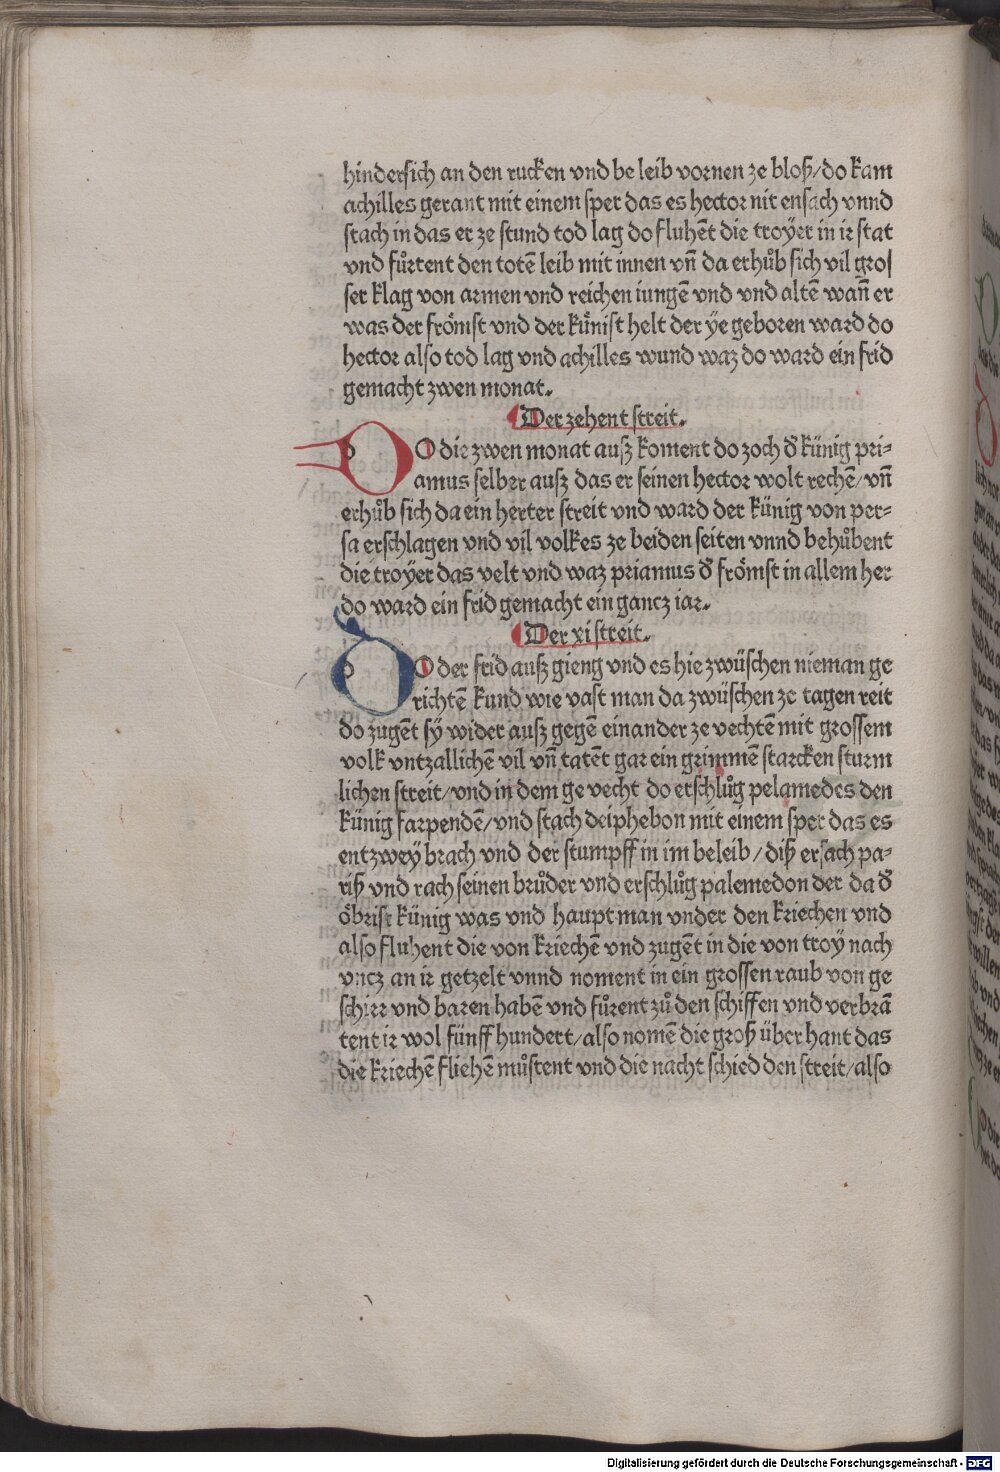 hindersich an den rucken vnd be leib vornen ze bloß/do kam
achilles gerant mit einem sper das es hector nit ensach vnnd
stach in das er ze stund tod lag do fluhēt die troÿer in ir stat
vnd fůrtent den totē leib mit innen vn̄ da erhůb sich vil gros
ser klag von armen vnd reichen iungē vnd vnd altē wan̄ er
was der frömst vnd der künist helt der ÿe geboren ward do
hector also tod lag vnd achilles wund waz do ward ein frid
gemacht zwen monat.
Der zehent streit.
DO die zwen monat ausz koment do zoch d̕ künig pri-
amus selber ausz das er seinen hector wolt rechē/vn̄
erhůb sich da ein herter streit vnd ward der künig von per-
sa erschlagen vnd vil volkes ze beiden seiten vnnd behůbent
die troÿer das velt vnd waz priamus d̕ frömst in allem her
do ward ein frid gemacht ein gancz iar.
Der xi streit.
DO der frid ausz gieng vnd es hie zwüschen nieman ge
richtē kund wie vast man da zwüschen ze tagen reit
do zugēt sÿ wider ausz gegē einander ze vechtē mit grossem
volk vntzallichē vil vn̄ tatēt gar ein grimmē starcken sturm
lichen streit/vnd in dem ge vecht do erschlůg pelamedes den
künig sarpendē/vnd stach deiphebon mit einem sper das es
entzweÿ brach vnd der stumpff in im beleib/diß ersach pa-
riß vnd rach seinen brůder vnd erschlůg palemedon der da d̕
öbrist künig was vnd haupt man vnder den kriechen vnd
also fluhent die von kriechē vnd zugēt in die von troy nach
vncz an ir getzelt vnnd noment in ein grossen raub von ge
schirr vnd baren habē vnd fůrent zů den schiffen vnd verbrā
tent ir wol fünff hundert/also nomē die groß über hant das
die kriechē fliehen můstent vnd die nacht schied den streit/also
Digitalisierung gefördert durch die Deutsche Forschungsgemeinschaft - DFG